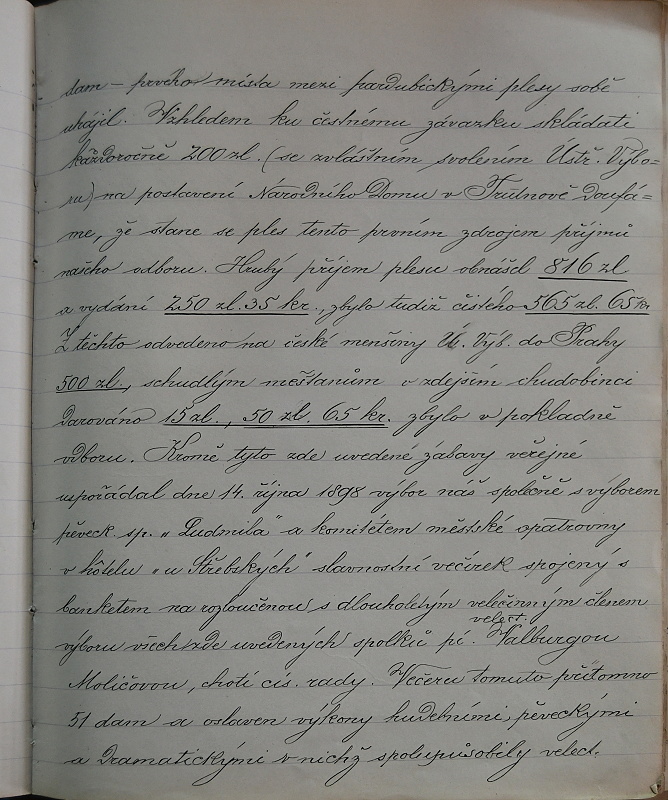 dam – prvého místa mezi pardubickými plesy sobě
uhájil. Vzhledem ku čestnému závazku skládati
každoročně 200 zl. (se zvláštním svolením Ústř. Výbo=
ru) na postavení Národního Domu v Trutnově doufá=
me, že stane se ples tento prvním zdrojem příjmů
našeho odboru. Hrubý příjem plesu obnášel 816 zl
a vydání 250 zl. 35 kr., zbylo tudíž čistého 565 zl. 65 kr
Z těchto odvedeno na české menšiny Ú. Výb. do Prahy
500 zl., schudlým měšťanům v zdejším chudobinci
darováno 15 zl., 50 zl. 65 kr. zbylo v pokladně
odboru. Kromě tyto zde uvedené zábavy veřejné
uspořádal dne 14. října 1898 výbor náš společně s výborem
pěveck. sp. „Ludmila" a komitétem městské opatrovny
v hôtelu „u Střebských" slavnostní večírek spojený s
banketem na rozloučenou s dlouholetým velečinným členem
výboru všech zde uvedených spolků pí. velect. Valburgou
Moličovou, chotí cís. rady. Večeru tomuto přítomno
51 dam a oslaven výkony hudebními, pěveckými
a dramatickými v nichž spoluupůsobily velect.